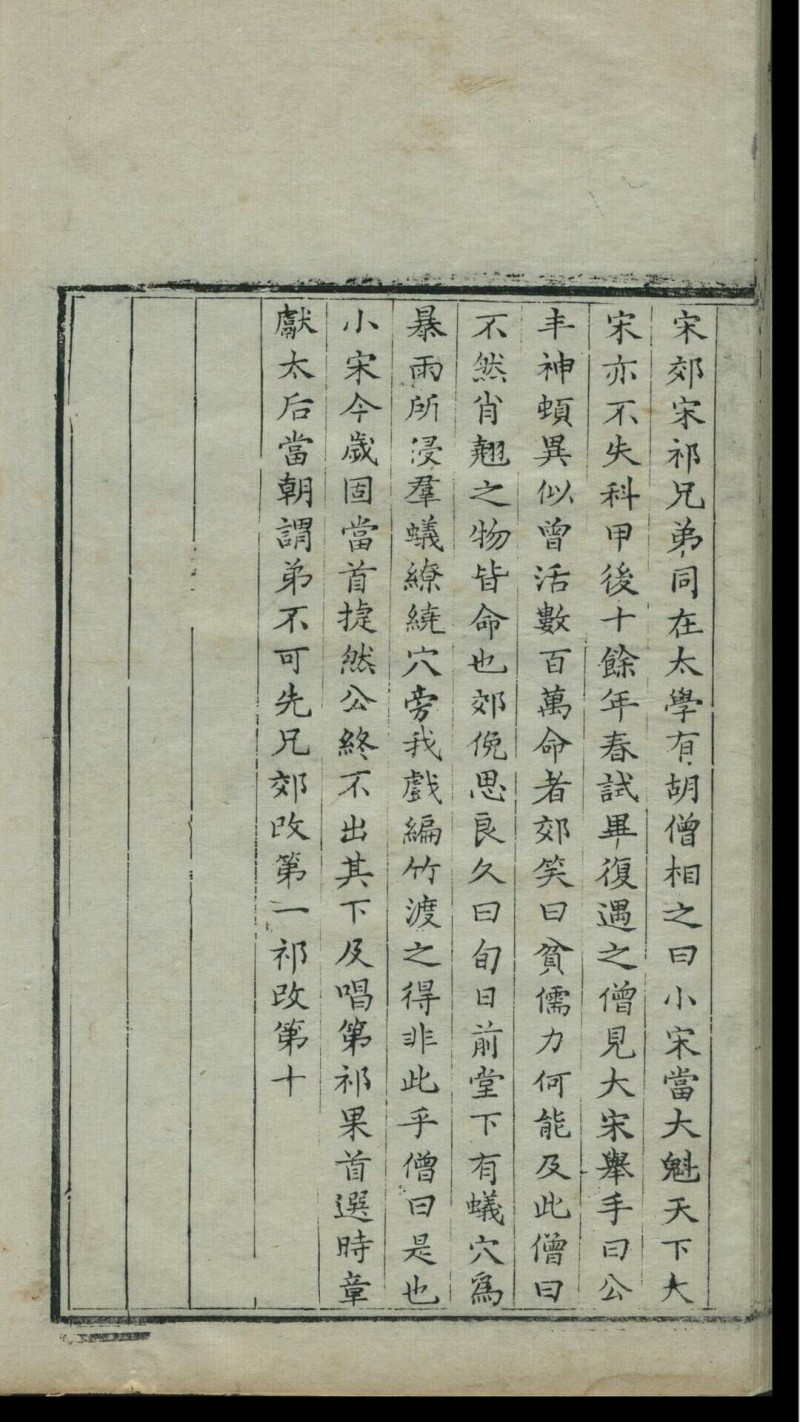 宋郊宋祁兄弟同在太學有胡僧相之曰小宋當大魁天下大
宋亦不失科甲後十餘年春試畢復遇之僧見大宋舉手曰公
丰神頓異似曾活數百萬命者郊笑曰貧儒力何能及此僧曰
不然肖翹之物皆命也郊俛思良久曰旬日前堂下有蟻穴爲
暴雨所浸羣蟻繚繞穴旁我戲編竹渡之得非此乎僧曰是也
小宋今歲固當首捷然公終不出其下及唱第祁果首選時章
獻太后當朝謂弟不可先兄郊改第一祁改第十